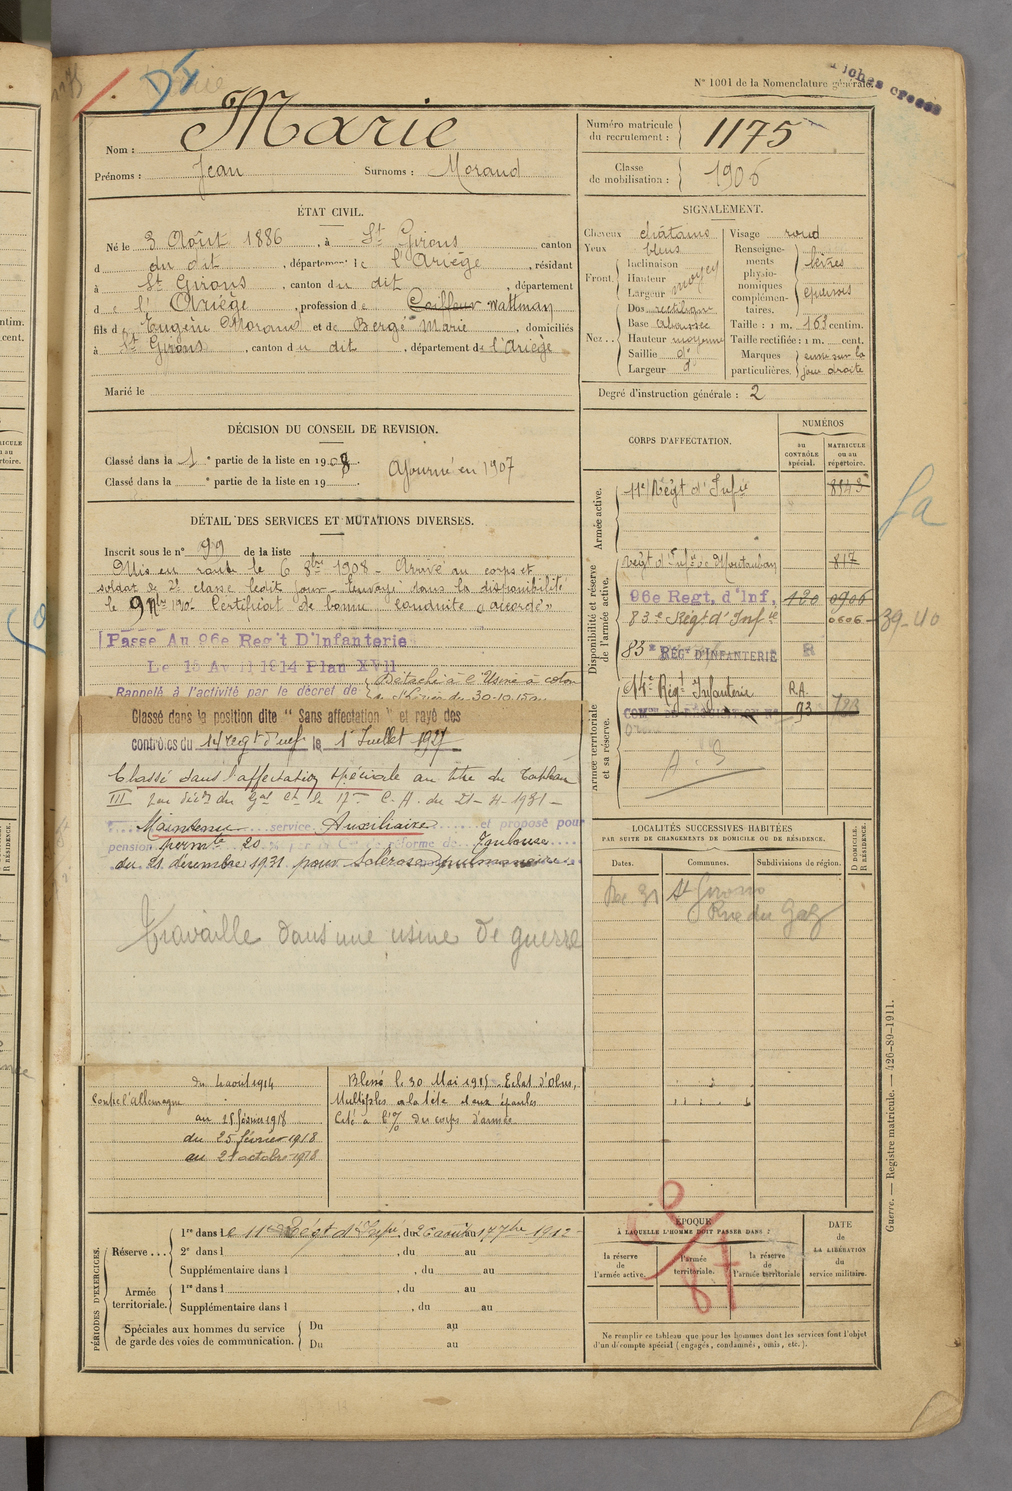 N° 1001 de la Nomenclature générale.
Nom : Marie
Prénoms : Jean Surnoms : Morand
Numéro matricule du recrutement : 1175
Classe de mobilisation : 1906
ÉTAT CIVIL.
Né le 3 Août 1886, à St Girons canton
d du dit, département de l'Ariège, résidant
à St Girons, canton du dit, département
de l'Ariège, profession de Coiffeur wattman
fils d'Eugène Morand et de Bergé Marie, domiciliés
à St Girons, canton du dit, département de l'Ariège
Marié le
SIGNALEMENT.
Cheveux châtains
Yeux bleus
Front Inclinaison
Hauteur moyen
Largeur
Nez Dos rectiligne
Base abaissée
Hauteur moyenne
Saillie d°
Largeur d°
Visage rond
Renseignements physionomiques complémentaires. lèvres épaisses
Taille : 1 m. 163 centim.
Taille rectifiée : 1 m. cent.
Marques particulières. sur la joue droite
Degré d'instruction générale : 2
DÉCISION DU CONSEIL DE REVISION.
Classé dans la 1e partie de la liste en 1908 Ajourné en 1907
Classé dans la e partie de la liste en 19
DÉTAIL DES SERVICES ET MUTATIONS DIVERSES.
Inscrit sous le n° 99 de la liste
Mis en route le 6 8bre 1908 - Arrivé au corps et
soldat de 2e classe ledit jour - Renvoyé dans la disponibilité
le 9 Certificat de bonne conduite "accordé"
Passé Au 96e Reg't D'Infanterie
Le 16 Avril 1914 Plan XVII
Détaché à l'Usine à coton
Rappelé à l'activité par le décret de
30-10-15
Classé dans la position dite "Sans affectation" et rayé des
contrôles du 14 regt d'inf le 1er Juillet 1927
Classé dans l'affectation spéciale au titre du Tableau
III par décis du Gal Ct le 17e C.A. du 21-4-1931-
Maintenu service Auxiliaire et proposé pour
pension permte 20 % par la réforme de Toulouse
du 21 décembre 1931 pour sclérose pulmonaire
Travaille dans une usine de guerre
CORPS D'AFFECTATION.
NUMÉROS
au CONTRÔLE spécial.
MATRICULE ou au répertoire.
Armée active.
11e Régt d'Infie 8843
Disponibilité et réserve de l'armée active.
Regt d'Infie de Montauban 817
96e Regt, d'Inf, 120 0906
83e Régt d'Infie 0606 - 39-40
83e REGt D'INFANTERIE R
Armée territoriale et sa réserve.
14e Régt Infanterie R.A. 93
A.S
LOCALITÉS SUCCESSIVES HABITÉES
PAR SUITE DE CHANGEMENTS DE DOMICILE OU DE RÉSIDENCE.
Dates. Communes. Subdivisions de région. D DOMICILE. R RÉSIDENCE.
Dec 31 St Girons
Rue du Gaz
du 4 août 1914
Contre l'Allemagne
au 25 février 1918
du 25 février 1918
au 21 octobre 1918
Blessé le 30 Mai 1915 - Eclat d'Obus,
Multiples à la tête et aux épaules
Cité à l'% du corps d'armée
PÉRIODES D'EXERCICES.
Réserve... 1re dans le 11e Régt d'Infie, du 26 août au 17 7bre 1912
2e dans l , du au
Supplémentaire dans l , du au
Armée territoriale. 1re dans l , du au
Supplémentaire dans l , du au
Spéciales aux hommes du service de garde des voies de communication. Du au
Du au
ÉPOQUE
À LAQUELLE L'HOMME DOIT PASSER DANS :
la réserve de l'armée active.
l'armée territoriale.
la réserve de l'armée territoriale
DATE de LA LIBÉRATION du service militaire.
Ne remplir ce tableau que pour les hommes dont les services font l'objet
d'un décompte spécial (engagés, condamnés, omis, etc.).
Guerre. — Registre matricule. — 426-89-1911.